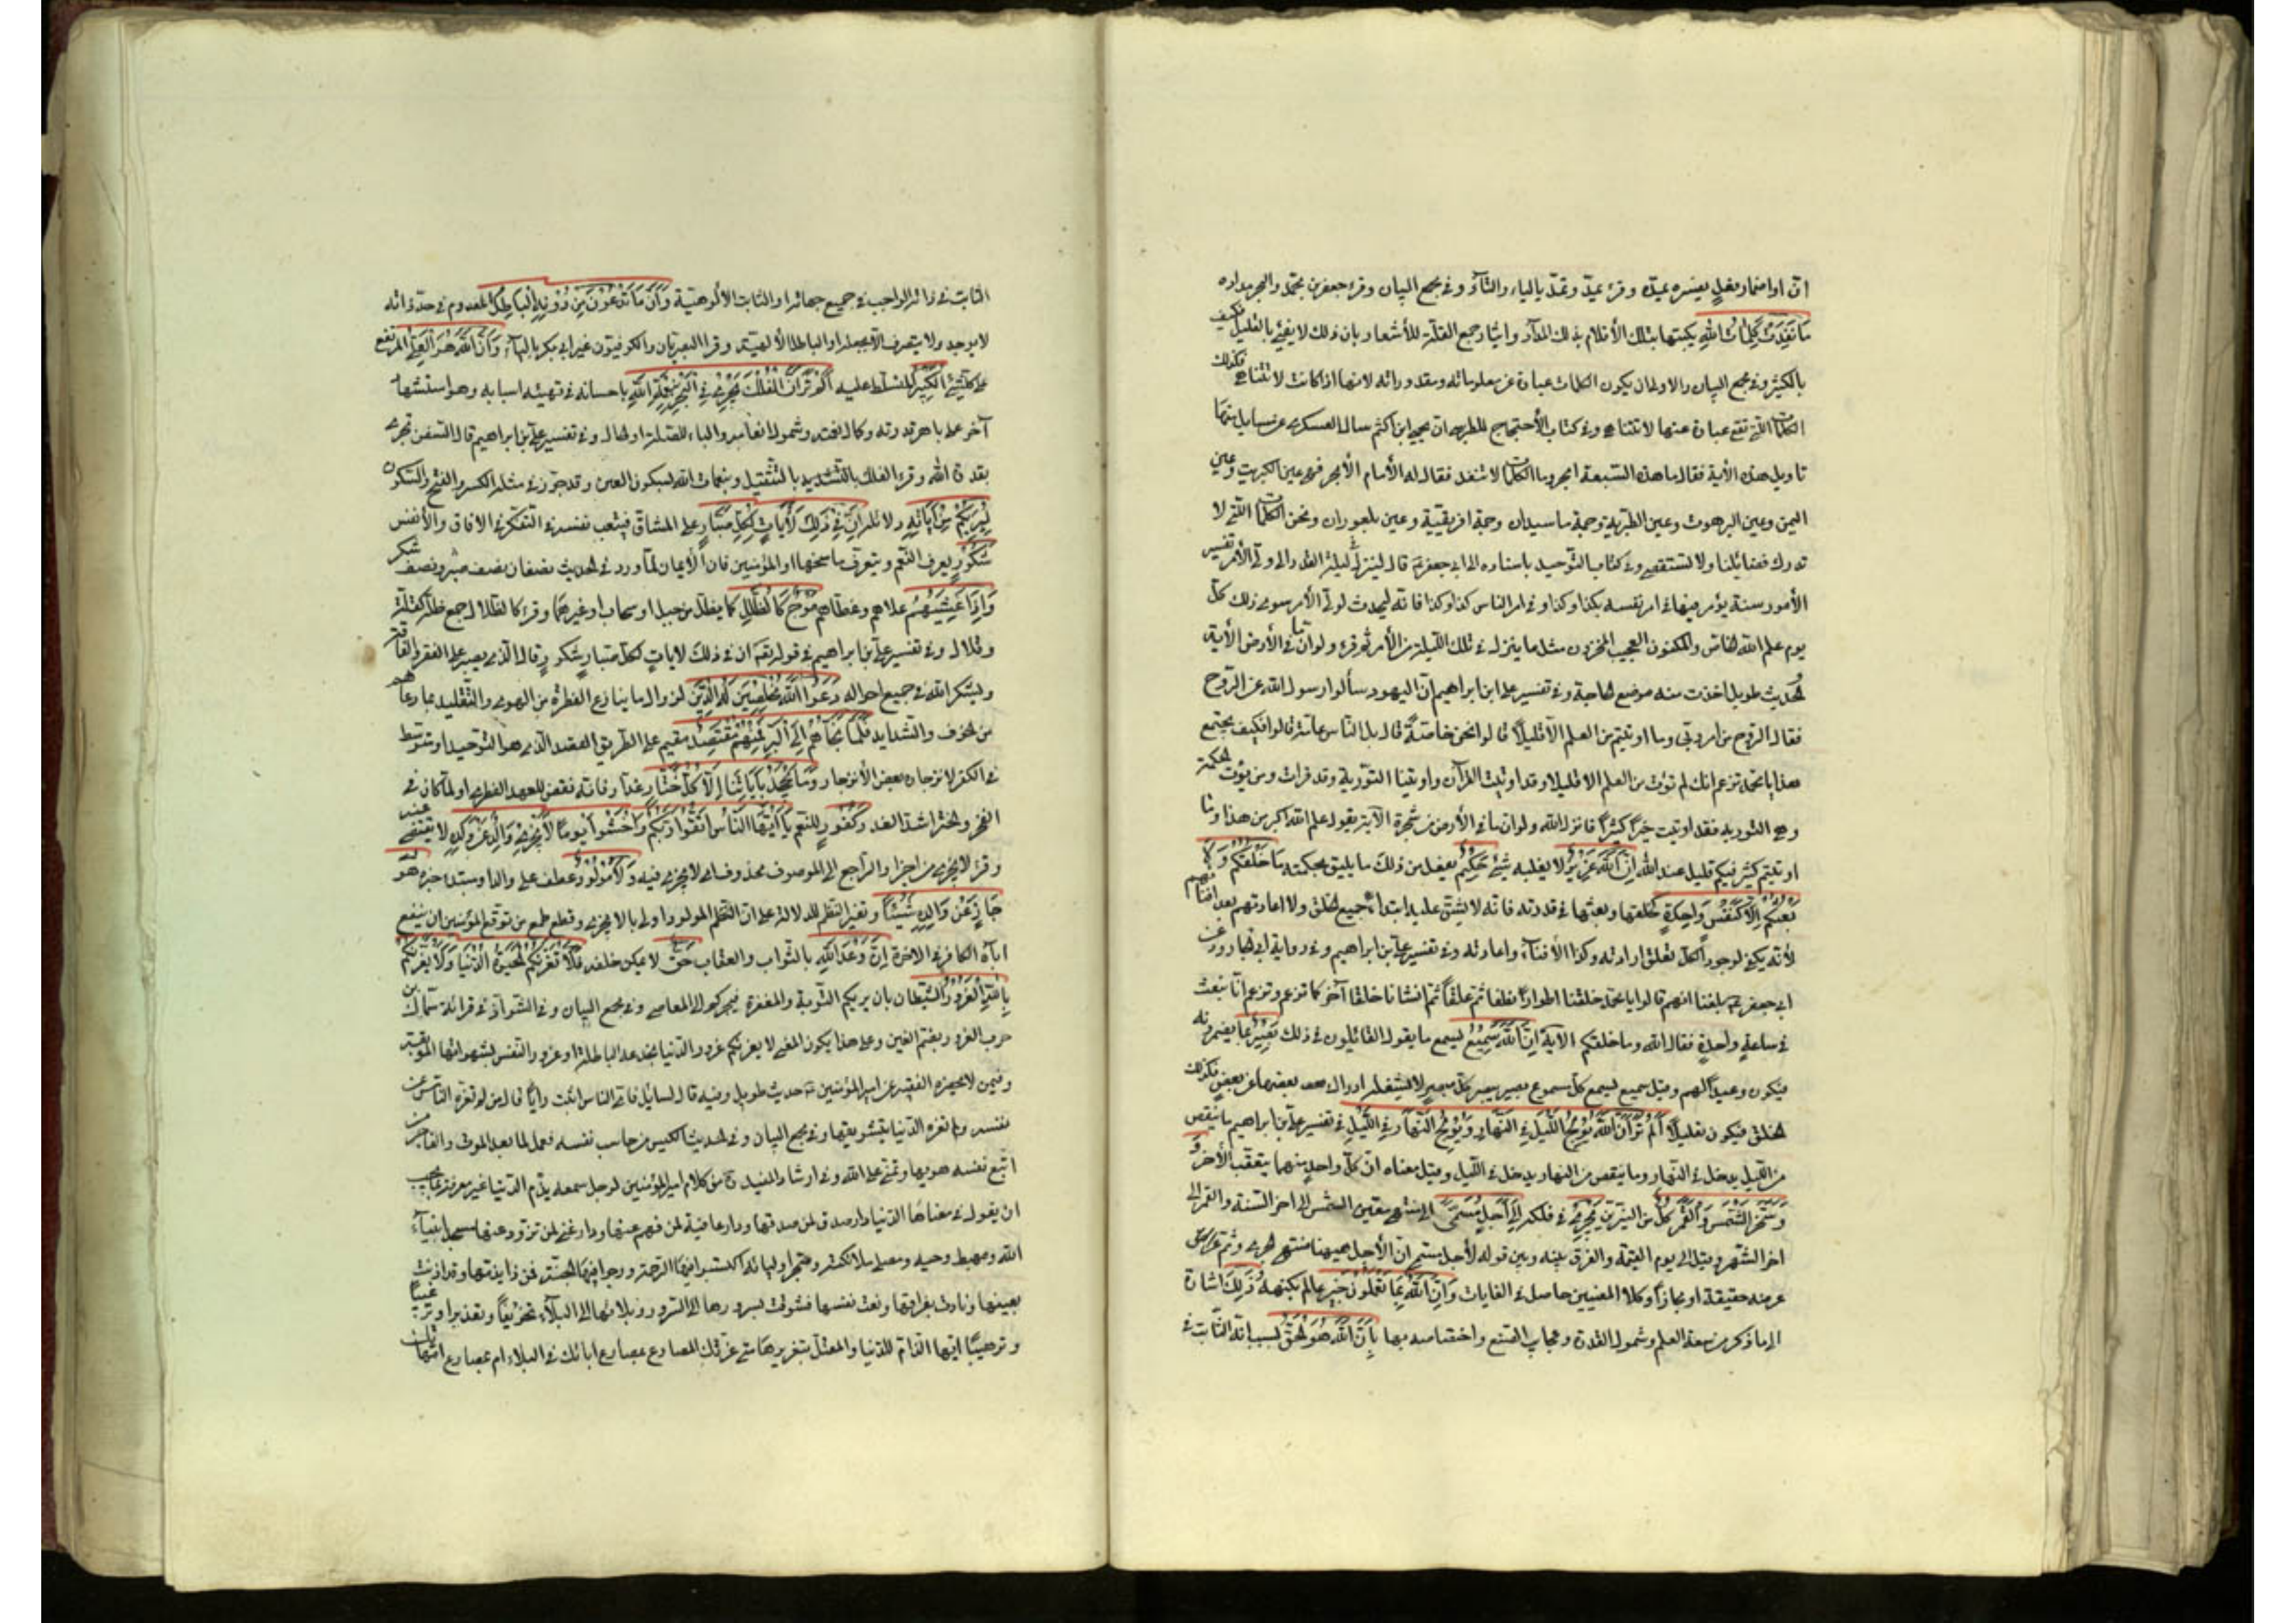 ان او اضمار فعل يفسره يمده وقرء يمد وتمد بالياء والتاء وفى مجمع البيان وقرء جعفر بن محمد والبحر مداده
مَا نَفِدَتْ كَلِمَاتُ اللهِ بكتبها بتلك الأقلام بذلك المداد وايثار جمع القلة للأشعار بان ذلك لا يفى بالقليل فكيف
بالكثير وفى مجمع البيان والاولى ان يكون الكلمات عبارة عن معلوماته ومقدوراته لانها اذا كانت لا تتناهى فكذلك
الكلمات التى تقع عبارة عنها لا تتناهى وفى كتاب الأحتجاج للطبرسى ان يحيى ابن اكثم سال العسكرى عن مسايل منها
تاويل هذه الأية فقال ما هذه السبعة ابحر وما الكلمات لا تنفد فقال له الأمام الأبحر فهى عين الكبريت وعين
اليمن وعين البرهوت وعين الطبرية وحمة ماسيدان وحمة افريقية وعين بلعوران ونحن الكلمات التى لا
تدرك فضائلنا ولا تستقصى وفى كتاب التوحيد باسناده الى ابى جعفر قال لينزل فى ليلة القدر الى ولى الأمر تفسير
الأمور سنة يؤمر فيها فى امر نفسه بكذا وكذا وفى امر الناس كذا وكذا فانه ليحدث لولى الأمر سوى ذلك كل
يوم علم الله الخاص والمكنون العجيب المخزون مثل ما ينزل فى تلك الليلة من الأمر ثم قرء ولو ان ما فى الأرض الأية
والحديث طويل اخذت منه موضع الحاجة وفى تفسير على ابن ابراهيم ان اليهود سألوا رسول الله عن الروح
فقال الروح من امر ربى وما اوتيتم من العلم الا قليلا قالوا نحن خاصة قال بل الناس عامة قالوا فكيف يجتمع
هذا يا محمد تزعم انك لم تؤت من العلم الا قليلا وقد اوتيت القرآن واوتينا التورية وقد قرات ومن يؤت الحكمة
وهى التورية فقد اوتيت خيرا كثيرا فانزل الله ولو ان ما فى الأرض من شجرة الآية يقول علم الله اكبر من هذا وما
اوتيتم كثير فيكم قليل عند الله اِنَّ اللهَ عَزِيزٌ لا يغلبه شىء حَكِيمٌ يفعل من ذلك ما يليق بحكمته مَا خَلْقُكُمْ وَلَا
بَعْثُكُمْ اِلَّا كَنَفْسٍ وَاحِدَةٍ كخلقها وبعثها فى قدرته فانه لا يشق عليه ابتداء جميع الخلق ولا اعادتهم بعد افنائهم
لأنه يكفى لوجود الكل تعلق ارادته وكذا الأفناء واعادته وفى تفسير على بن ابراهيم وفى رواية ابى الجارود عن
ابى جعفر بلغنا انهم قالوا يا محمد خلقنا اطوارا نطفا ثم علقا ثم انشانا خلقا آخر كما تزعم وتزعم انا نبعث
فى ساعة واحدة فقال الله وما خلقكم الآية اِنَّ اللهَ سَمِيعٌ يسمع ما يقول القائلون فى ذلك بَصِيرٌ بما يضمرونه
فيكون وعيدا لهم وقيل سميع يسمع كل مسموع بصير يبصر كل مبصر لا يشغله ادراك بعضها عن بعض فكذلك
الخلق فيكون تعليلا اَلَمْ تَرَ اَنَّ اللهَ يُولِجُ اللَّيْلَ فِى النَّهَارِ وَيُولِجُ النَّهَارَ فِى اللَّيْلِ فى تفسير على بن ابراهيم ما ينقص
من الليل يدخل فى النهار وما ينقص من النهار يدخل فى الليل وقيل معناه ان كل واحد منهما يتعقب الأخر و
وَسَخَّرَ الشَّمْسَ وَالْقَمَرَ كُلٌّ من النيرين يَجْرِى فى فلكه اِلَى اَجَلٍ مُسَمًّى الى منتهى معين الشمس الى اخر السنة والقمر الى
اخر الشهر وقيل الى يوم القيمة والفرق بينه وبين قوله لأجل مسمى ان الأجل ههنا منتهى الجرى وثم غرضه
عرضه حقيقة او مجازا وكلا المعنيين حاصل فى الغايات وَاَنَّ اللهَ بِمَا تَعْمَلُونَ خَبِيرٌ عالم بكنهه ذَلِكَ اشارة
الى ما ذكر من سعة العلم وشمول القدرة وعجايب الصنع واختصاصه بها بِاَنَّ اللهَ هُوَ الْحَقُّ بسبب انه الثابت فى
الثابت فى ذاته الواجب فى جميع جهاته او الثابت الالوهيّة وَاَنَّ مَا تَدْعُونَ مِنْ دُونِهِ الْبَاطِلُ المعدوم فى حدّ ذاته
لا يوجد ولا يتصف الا بجعله او الباطل الالهية وقرا البصريان والكوفيون غير ابى بكر بالياء وَاَنَّ اللهَ هُوَ الْعَلِىُّ المرتفع
على كل شىء الْكَبِيرُ المتسلط عليه اَلَمْ تَرَ اَنَّ الْفُلْكَ تَجْرِى فِى الْبَحْرِ بِنِعْمَةِ اللهِ باحسانه فى تهيئة اسبابه وهو استشهاد
آخر على باهر قدرته وكمال حكمته وشمول انعامه والباء للصلة او الحال وفى تفسير على بن ابراهيم قال السفن تجرى
بقدرة الله وقرء الفلك بالتثقيل وبنعمات الله بسكون العين وقد جوز فى مثله الكسر والفتح والسكون
لِيُرِيَكُمْ مِنْ آيَاتِهِ دلائله اِنَّ فِى ذَلِكَ لَآيَاتٍ لِكُلِّ صَبَّارٍ على المشاق فيتعب نفسه فى التفكر فى الافاق والأنفس
شَكُورٍ يعرف النعم ويتعرف مانحها او المؤمنين فان الأيمان كما ورد فى الحديث نصفان نصف صبر ونصف شكر
وَاِذَا غَشِيَهُمْ علاهم وغطاهم مَوْجٌ كَالظُّلَلِ كما يظلل من جبل او سحاب او غيرهما وقرء كالظلال جمع ظلة كقلة
وقلال وفى تفسير على بن ابراهيم فى قوله ان فى ذلك لايات لكل صبار شكور قال الذى يصبر على الفقر والفاقة
ويشكر الله فى جميع احواله دَعَوُا اللهَ مُخْلِصِينَ لَهُ الدِّينَ لزوال ما ينازع الفطرة من الهوى والتقليد بما دهاهم
من الخوف والشدايد فَلَمَّا نَجَّاهُمْ اِلَى الْبَرِّ فَمِنْهُمْ مُقْتَصِدٌ مقيم على الطريق القصد الذى هو التوحيد او متوسط
فى الكفر لانزجاره بعض الأنزجار وَمَا يَجْحَدُ بِآيَاتِنَا اِلَّا كُلُّ خَتَّارٍ غدار فانه نقض للعهد الفطرى او لما كان فى
البحر والختر اشد الغدر كَفُورٍ للنعم يَا اَيُّهَا النَّاسُ اتَّقُوا رَبَّكُمْ وَاخْشَوْا يَوْمًا لَا يَجْزِى وَالِدٌ عَنْ وَلَدِهِ لا يقضى عنه
وقرء لا يجزئ من اجزا والراجع الى الموصوف محذوف اى لا يجزى فيه وَلَا مَوْلُودٌ عطف على والد او مبتدا خبره هُوَ
جَازٍ عَنْ وَالِدِهِ شَيْئًا وتغيير النظم للدلالة على ان المولود اولى بالا يجزى وقطع طمع من توقع المؤمنين ان ينفع
اباه الكافر فى الاخرة اِنَّ وَعْدَ اللهِ بالثواب والعقاب حَقٌّ لا يمكن خلفه فَلَا تَغُرَّنَّكُمُ الْحَيَوةُ الدُّنْيَا وَلَا يَغُرَّنَّكُمْ
بِاللهِ الْغَرُورُ الشيطان بان يرجيكم التوبة والمغفرة فيجسركم على المعاصى وفى مجمع البيان وفى الشواذ فى قرائة سماك بن
حرب الغرور بضم الغين وعلى هذا يكون المعنى لا يغرنكم غرور الدنيا بخدعها الباطلة او غرور النفس بشهواتها الموبقة
وفيمن لا يحضره الفقيه عن امير المؤمنين حديث طويل وفيه قال السايل فاى الناس اثبت رايا قال من لم تغره الناس من
نفسه ولم تغره الدنيا بتشويقها وفى مجمع البيان وفى الحديث الكيس من حاسب نفسه وعمل لما بعد الموت والفاجر من
اتبع نفسه هويها وتمنى على الله وفى ارشاد المفيد من كلام امير المؤمنين لرجل سمعه يذم الدنيا غير معرفة بما يجب
ان يقول فى معناها الدنيا دار صدق لمن صدقها ودار عافية لمن فهم عنها ودار غنى لمن تزود منها مسجد انبياء
الله ومهبط وحيه ومصلى ملائكته ومتجر اوليائه اكتسبوا فيها الرحمة وربحوا فيها الجنة فمن ذا يذمها وقد اذنت
ببينها ونادت بفراقها ونعت نفسها فشوقت بسرورها الى السرور وببلائها الى البلاء تخويفا وتحذيرا وترغيبا
وترهيبا ايها الذام للدنيا والمعتل بتغريرها متى غرتك امصارع ابائك فى البلاء ام بمصارع امهاتك